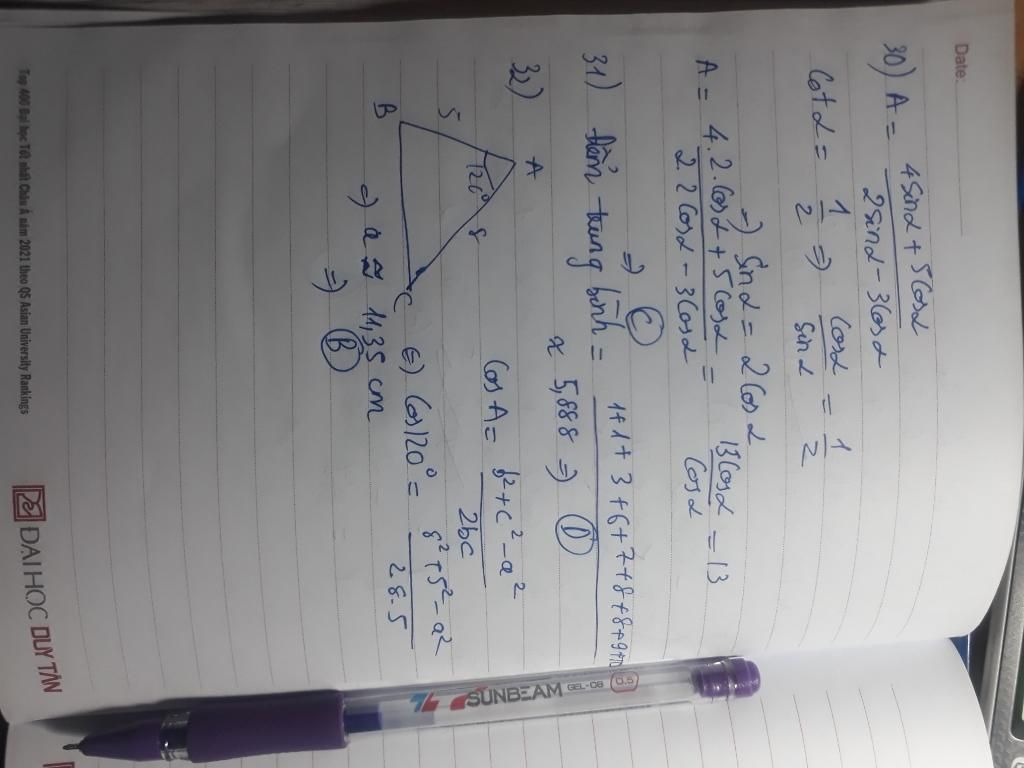 Date:
30) A = 4Sinα + 5Cosα / 2Sinα - 3Cosα
Cotα = 1/2 => Cosα/Sinα = 1/2
=> Sinα = 2Cosα
A = 4.2.Cosα + 5Cosα / 2.2Cosα - 3Cosα = 13Cosα / Cosα = 13
=> C
31) Điểm trung bình = 1+1+3+6+7+8+8+9+10
≈ 5,888 => D
32)
A
5
120°
8
B
C
Cos A = b² + c² - a² / 2bc
(=) Cos120° = 8² + 5² - a² / 2.8.5
=) a ≈ 11,35 cm
=> B
Top 400 Đại học Tốt nhất Châu Á năm 2021 theo QS Asian University Rankings
ĐẠI HỌC DUY TÂN
SUNBEAM GEL-08 0.5